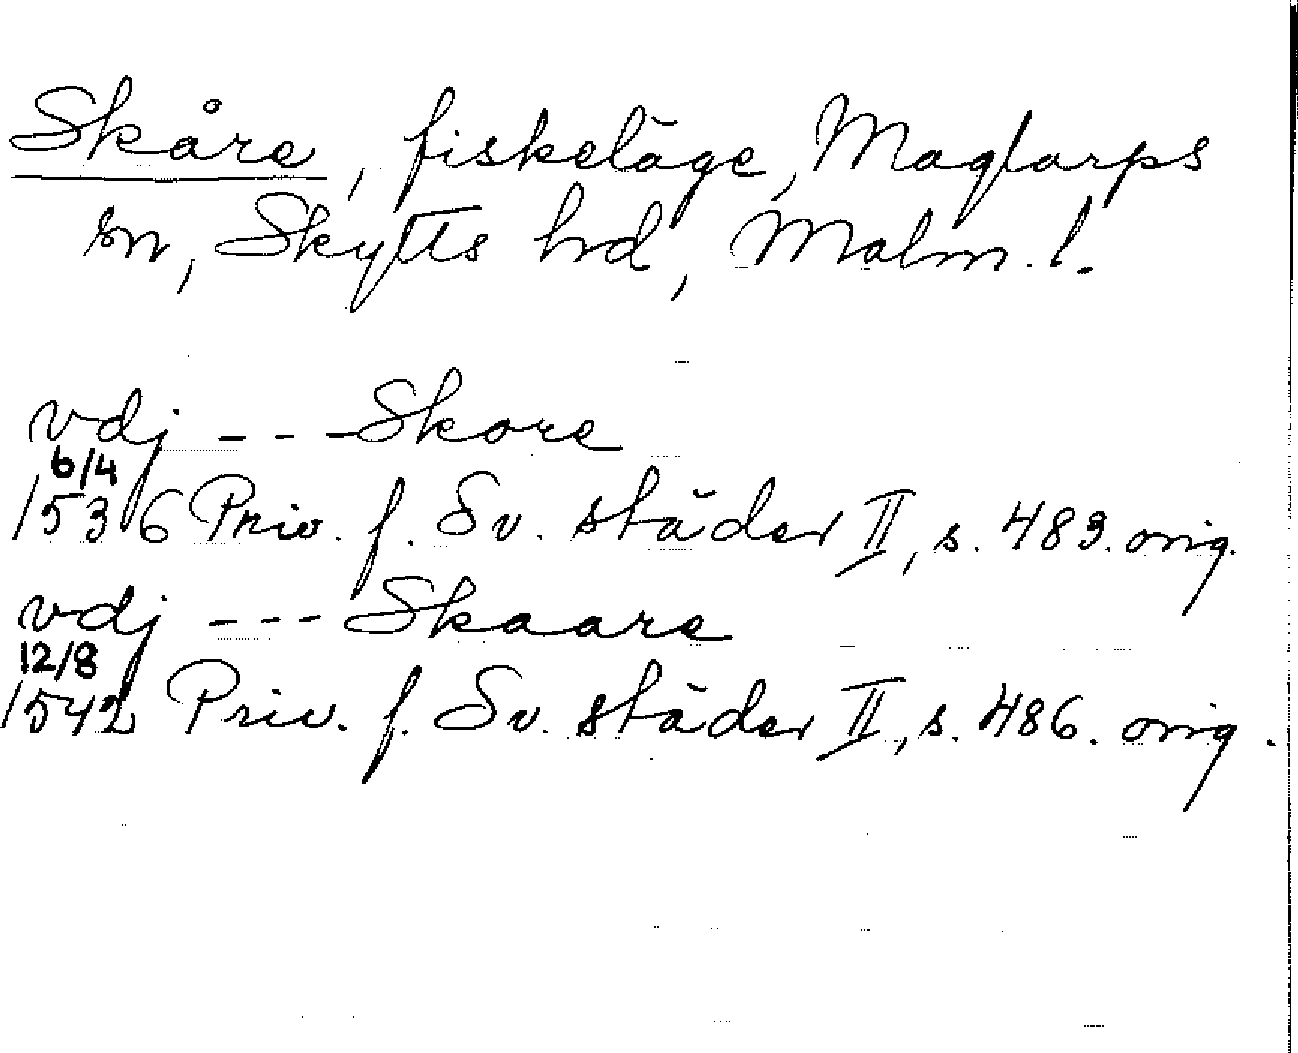 Skåre, fiskeläge, Maglarps
sn, Skytts hd, Malm. l.
vdj - - - Skore
6/4
1536 Priv. f. Sv. städer II, s. 483. orig.
vdj - - - Skaare
12/8
1542 Priv. f. Sv. städer II, s. 486. orig.